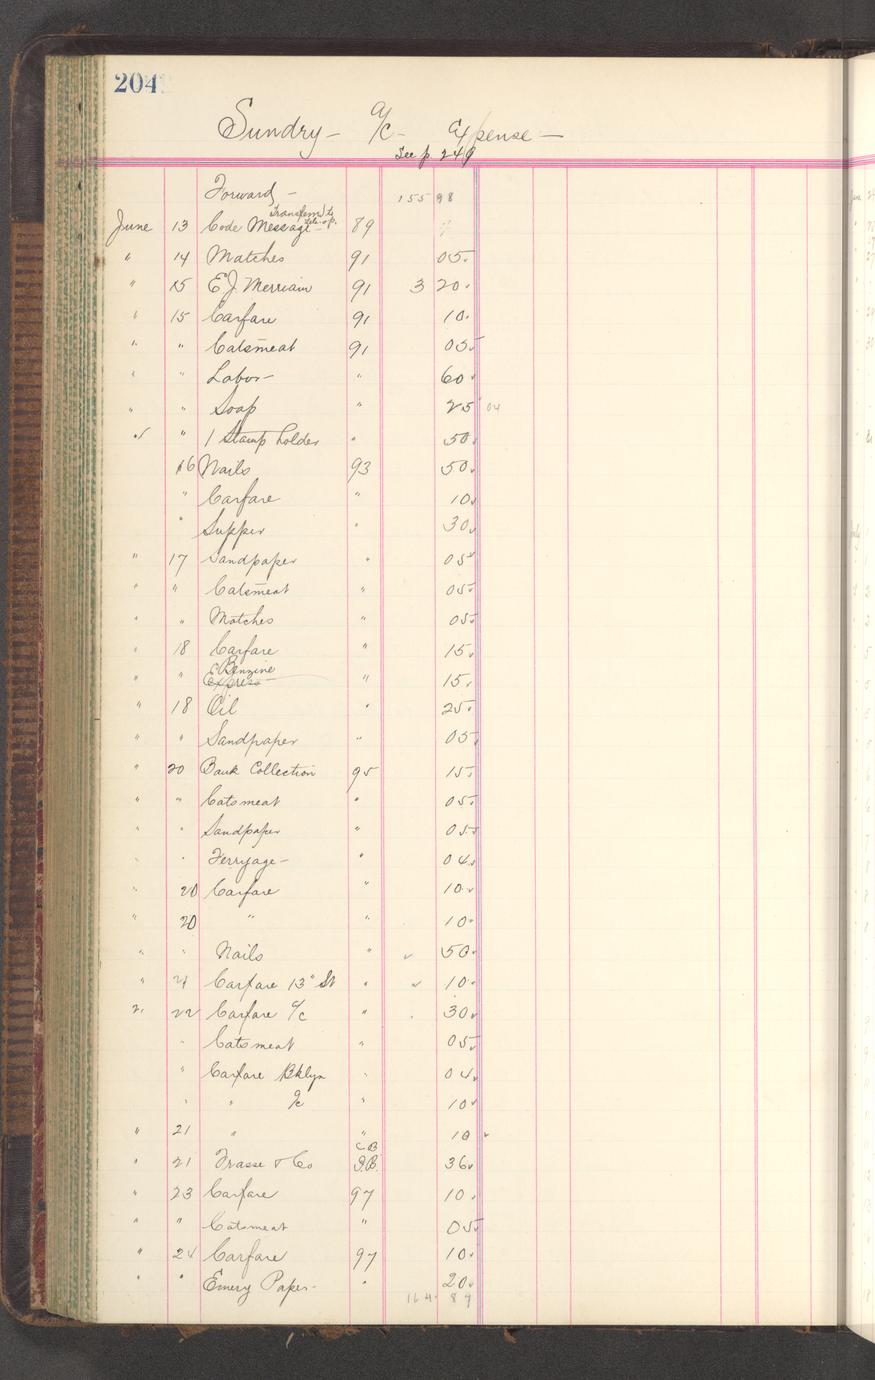 204
Sundry - a/c - Expense -
See p. 249
Forward - 155 98
Transferred to
June 13 Code Message - 89
" 14 Matches 91 05
" 15 E.J. Merriam 91 3 20
" 15 Carfare 91 10
" " Catsmeat 91 05
" " Labor - " 60
" " Soap " 25 04
" " 1 Stamp holder " 50
16 Nails 93 50
" Carfare " 10
" Supper " 30
" 17 Sandpaper " 05
" " Catsmeat " 05
" " Matches " 05
" 18 Carfare " 15
Benzine
" " Express " 15
" 18 Oil " 25
" " Sandpaper " 05
" 20 Bank Collection 95 15
" " Catsmeat " 05
" " Sandpaper " 05
" " Ferryage - " 04
" 20 Carfare " 10
" 20 " " 10
" " Nails " 50
" 21 Carfare 13" St " 10
" 22 Carfare a/c " 30
" Catsmeat " 05
" Carfare Bklyn " 04
" " a/c " 10
" 21 " " 10
CB
" 21 Frasse & Co 36
" 23 Carfare 97 10
" " Catsmeat " 05
" 24 Carfare 97 10
" " Emery Paper - " 20
164 89